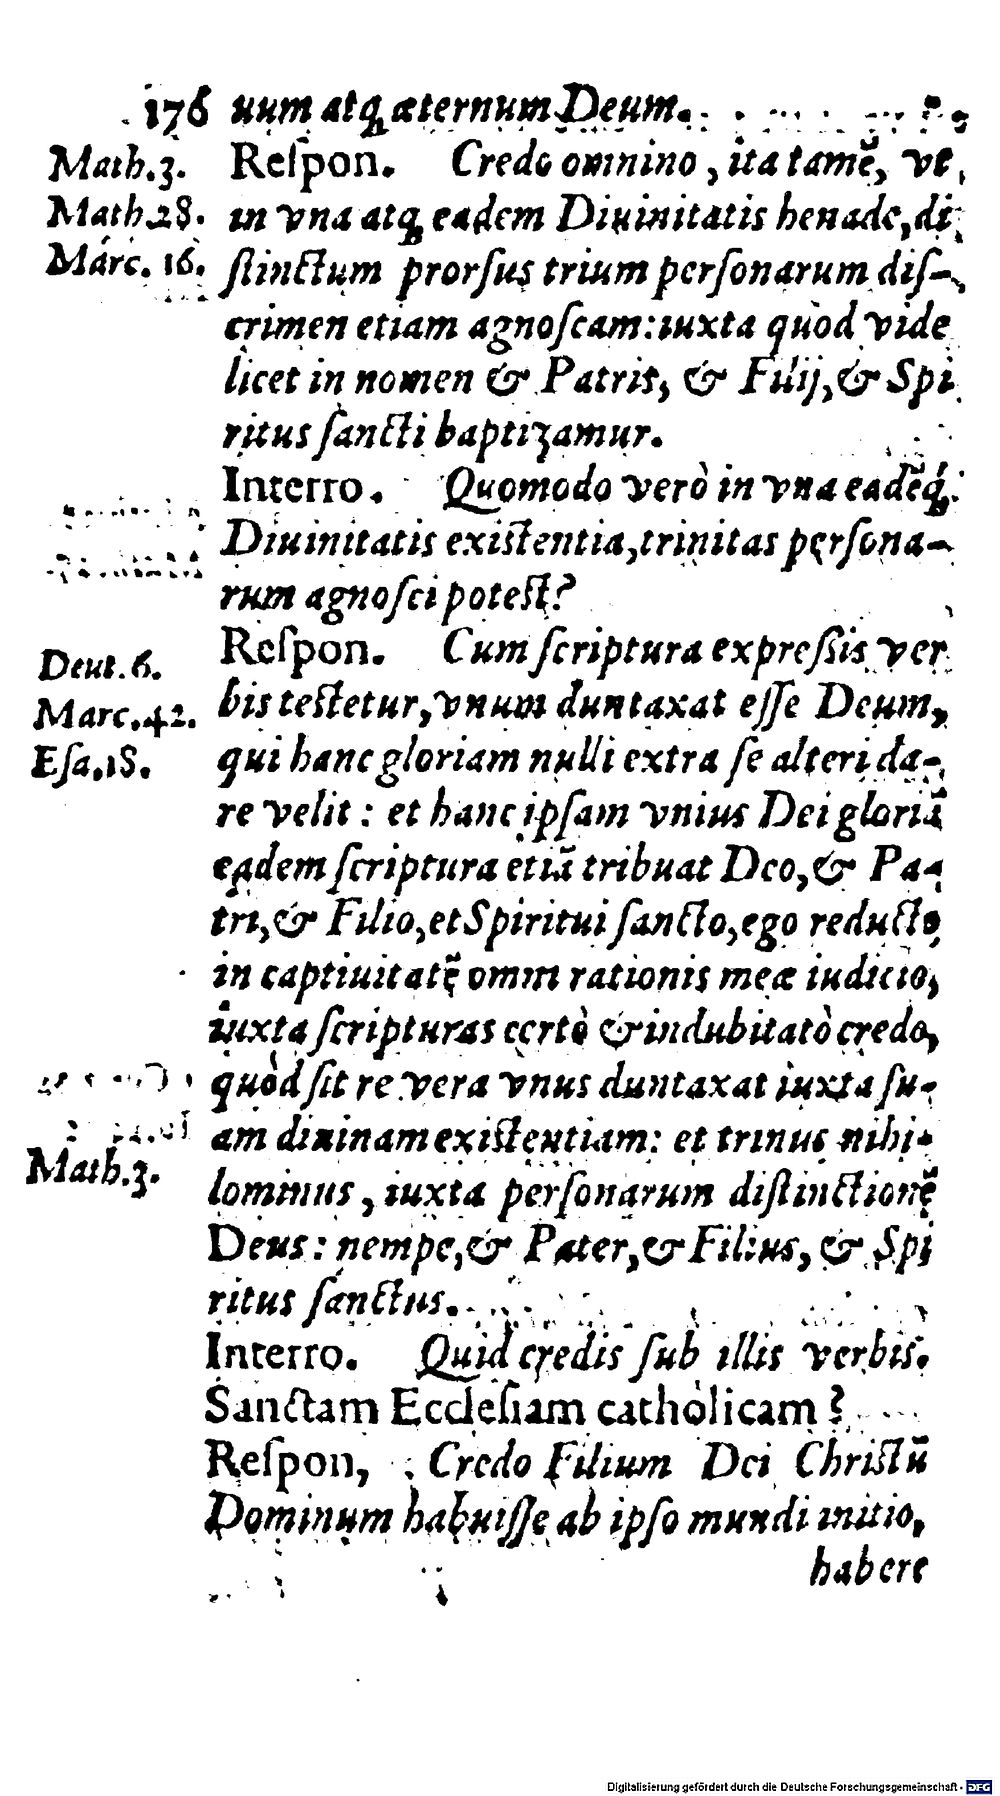 176 uum atq́ꝫ æternum Deum.
Math.3.
Math.28.
Marc. 16.
Reſpon. Credo omnino, ita tamẽ, vt,
in vna atq́ꝫ eadem Diuinitatis henade, di
ſtinctum prorſus trium perſonarum diſ-
crimen etiam agnoſcam: iuxta quòd vide
licet in nomen & Patris, & Filij, & Spi
ritus ſancti baptizamur.
Interro. Quomodo verò in vna eadẽq́ꝫ
Diuinitatis existentia, trinitas perſona-
rum agnoſci potest?
Deut. 6.
Marc. 42.
Eſa. 18.
Reſpon. Cum ſcriptura expreſsis ver
bis testetur, vnum duntaxat eſſe Deum,
qui hanc gloriam nulli extra ſe alteri da-
re velit: et hanc ipſam vnius Dei gloriã
eadem ſcriptura etiã tribuat Deo, & Pa-
tri, & Filio, et Spiritui ſancto, ego reducto
in captiuitatẽ omni rationis meæ iudicio,
iuxta ſcripturas certò & indubitatò credo,
quòd ſit re vera vnus duntaxat iuxta ſu-
am diuinam existentiam: et trinus nihi-
Math.3.
lominus, iuxta perſonarum diſtinctionẽ
Deus: nempe, & Pater, & Filius, & Spi
ritus ſanctus.
Interro. Quid credis ſub illis verbis.
Sanctam Eccleſiam catholicam?
Reſpon, Credo Filium Dei Christũ
Dominum habuiſſe ab ipſo mundi initio,
habere
Digitalisierung gefördert durch die Deutsche Forschungsgemeinschaft - DFG